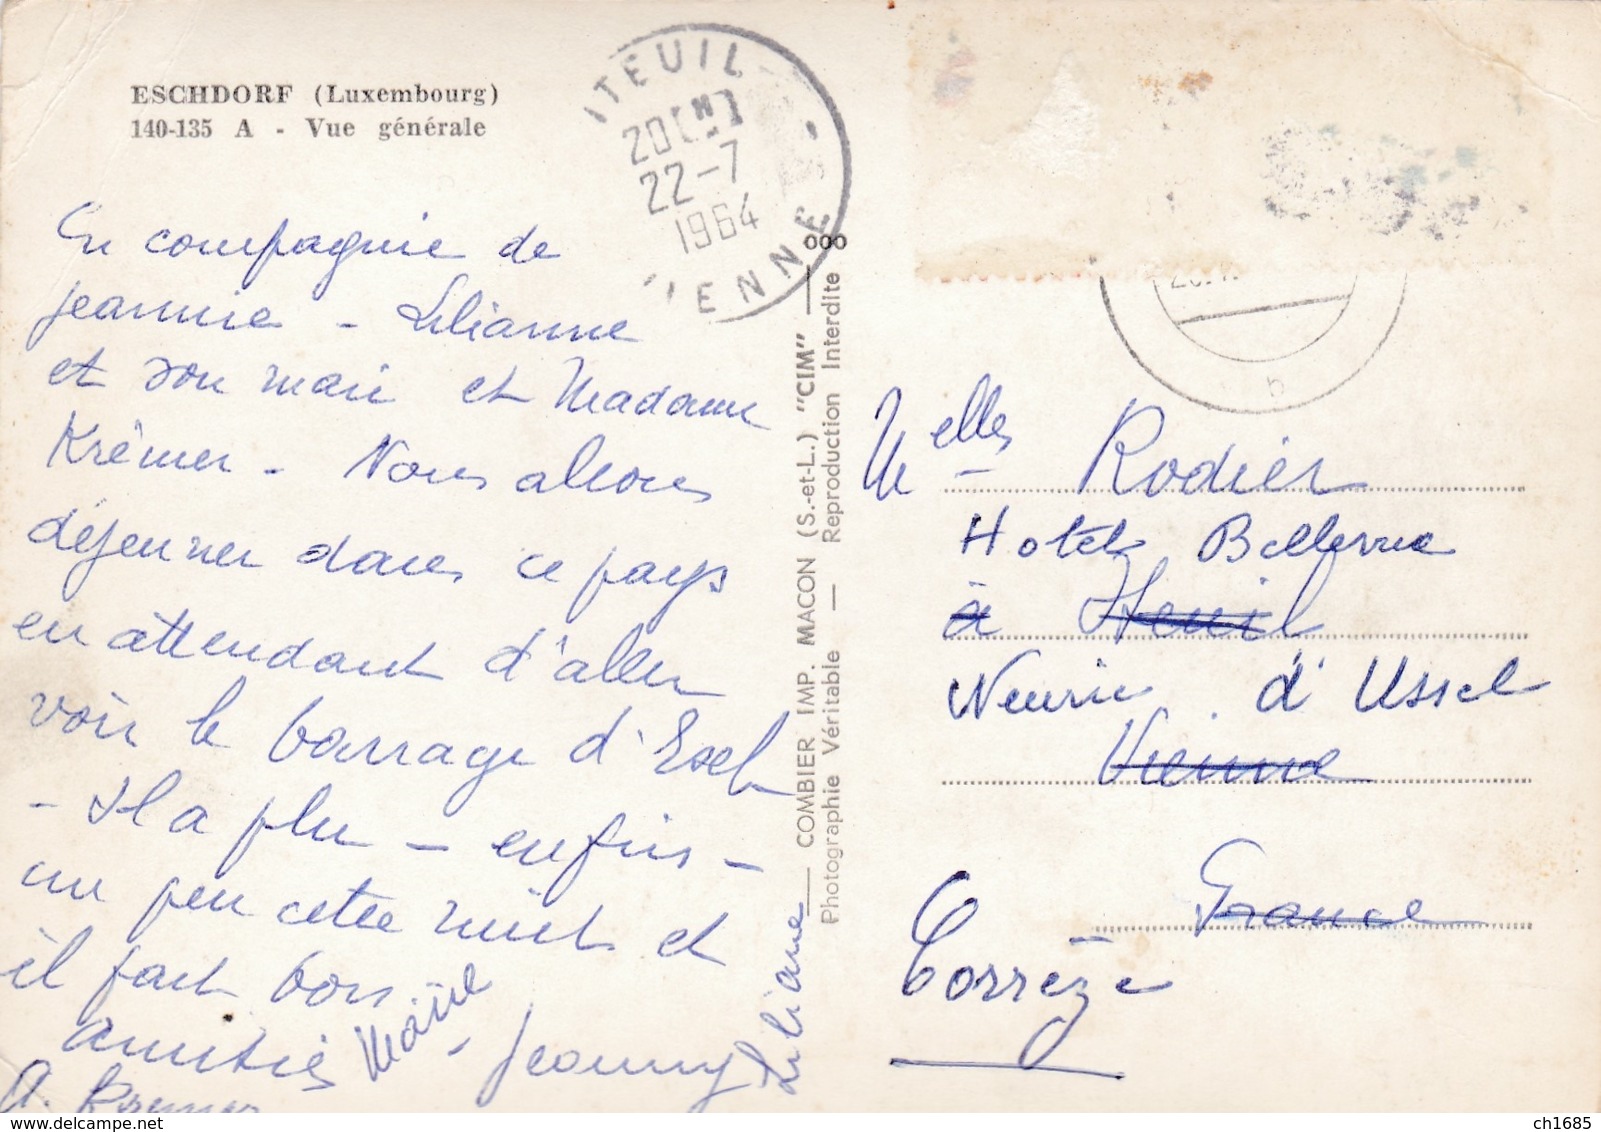 ESCHDORF (Luxembourg)
140-135 A - Vue générale
ITEUIL
20H
22-7
1964
VIENNE
En compagnie de
jeannie - Lilianne
et son mari et Madame
Krêmer - Nous allons
déjeuner dans ce pays
en attendant d'aller
voir le barrage d'Esch
- Il a plu - enfin -
un peu cette nuit et
il fait bon
Amitiés Marie - Jeanny Liliane
A. Kremer
COMBIER IMP. MACON (S.-et-L.) "CIM"
Photographie Véritable — Reproduction Interdite
000
b
Melles Rodier
Hotel Bellevue
à
d'Ussel
Vienne
France
Corrèze
ch1685
delcampe.net